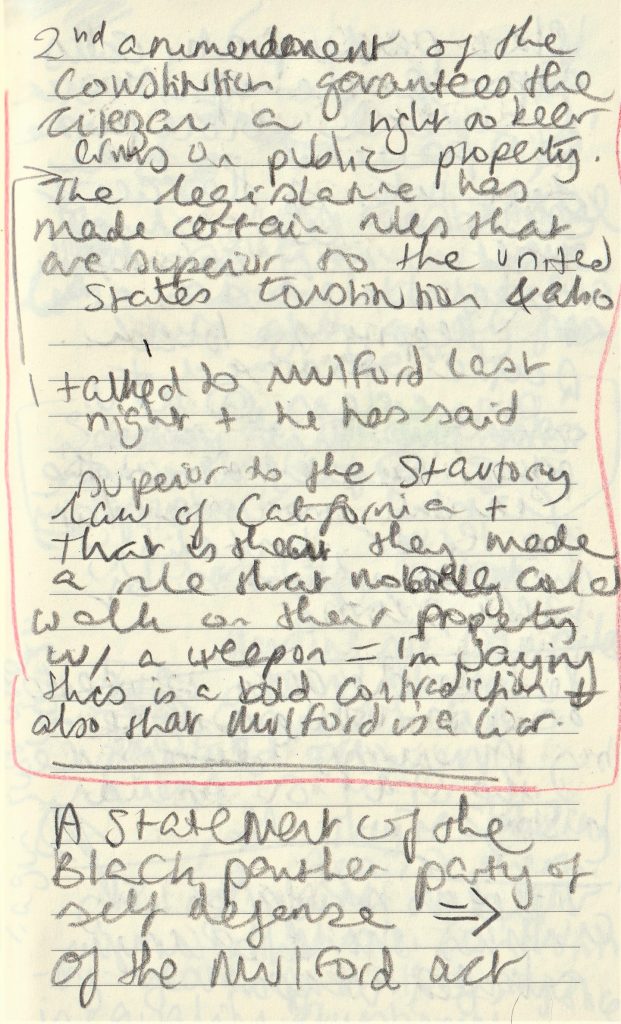 2nd ammendment of the
Constitution garantees the
citezan a right to keep
arms on public property.
The legislature has
made certain rules that
are superior to the united
States Constitution & also
talked to Mulford last
night + he has said
superior to the Stautory
law of California +
that is that they made
a rule that nobody could
walk on their property
w/ a weapon = I'm saying
this is a bold contradiction +
also that Mulford is a liar.
A statement of the
Black panther party of
self defense ⇒
Of the Mulford act